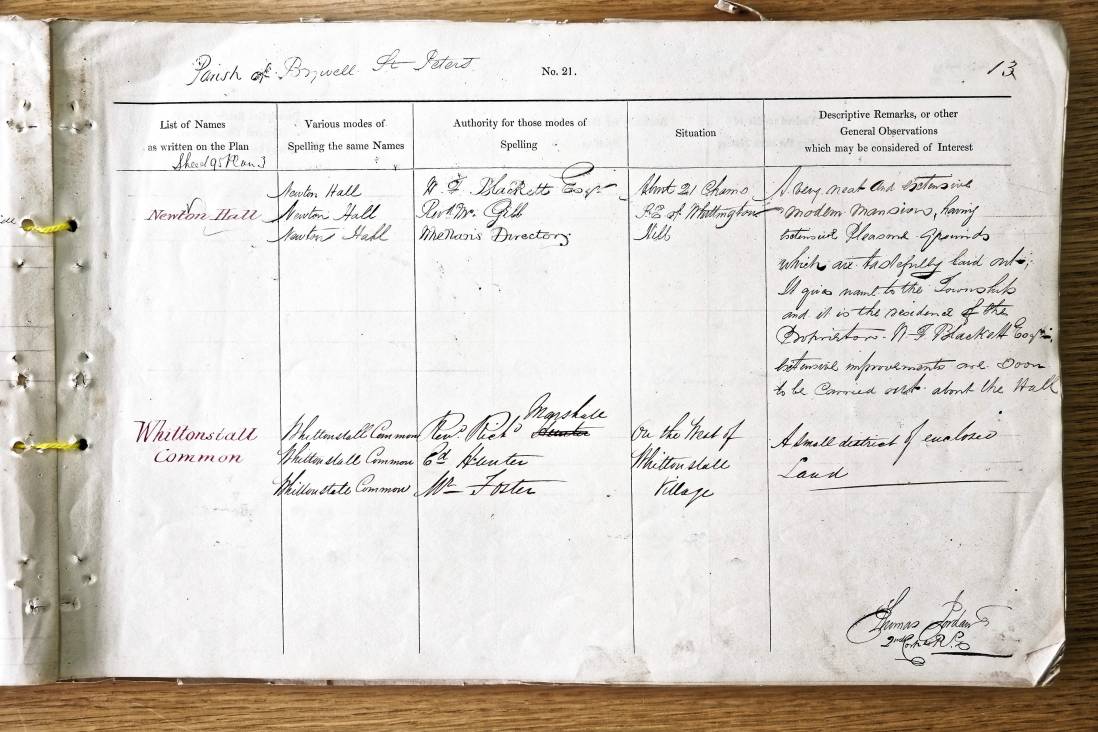 Parish of Bywell St Peters
No. 21.
13
List of Names
as written on the Plan
Sheet 95 Plan 3
Various modes of
Spelling the same Names
Authority for those modes of
Spelling
Situation
Descriptive Remarks, or other
General Observations
which may be considered of Interest
Newton Hall
Newton Hall
Newton Hall
Newton Hall
Blackett Esqr
Revd Mr. Gibb
Directory
Abut 21 Chains
S.E. of Whittington
Hill
A very neat and extensive
modern mansion, having
extensive Pleasure grounds
which are tastefully laid out;
It gives name to the Township
and it is the residence of the
Proprietor. Blackett Esqr.
extensive improvements are soon
to be carried out about the Hall
Whittonstall
Common
Whittonstall Common
Whittonstall Common
Whittonstall Common
Revd. Richd Marshall
Ed Hunter
Mr Foster
On the West of
Whittonstall
Village
A small district of enclosed
Land
Thomas Jordan
2nd Corpl R.S.